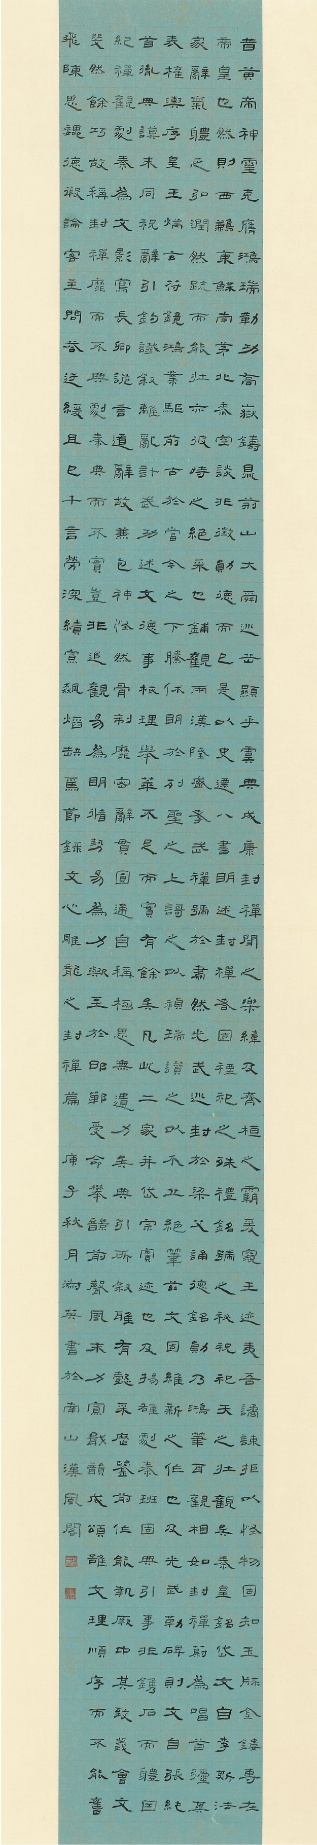 昔黃帝神靈克膺鴻瑞勒功喬嶽鑄鼎荊山大舜巡岳顯乎虞典成康封禪聞之樂緯及齊桓之霸爰窺王迹夷吾譎諫拒以怪物固知玉牒金鏤專在
帝皇也然則西鶼東鰈南茅北黍空談非徵勛德而已是以史遷八書明述封禪者固禋祀之殊禮銘號之秘祝祀天之壯觀矣秦皇銘岱文自李斯法
家辭氣體乏弘潤然疏而能壯亦彼時之絕采也鋪觀兩漢隆盛孝武禪號於肅然光武巡封於梁父誦德銘勛乃鴻筆耳觀相如封禪蔚為唱首爾其
表權輿序皇王炳玄符鏡鴻業驅前古於當今之下騰休明於列聖之上謌之以禎瑞讚之以介丘絕筆茲文固維新之作也及光武勒碑則文自張純
首胤典謨末同祝辭引鉤讖敘離亂計武功述文德事核理舉華不足而實有餘矣凡此二家並岱宗實迹也及揚雄劇秦班固典引事非鐫石而體因
紀禪觀劇秦為文影寫長卿詭言遁辭故兼包神怪然骨制靡密辭貫圓通自稱極思無遺力矣典引所敘雅有懿采歷鑒前作能執厥中其致義會文
斐然餘巧故稱封禪靡而不典劇秦典而不實豈非追觀易為明循勢易為力歟至於邯鄲受命攀韻前聲風末力寡輯韻成頌雖文理順序而不能奮
飛陳思魏德假論客主問答迂緩且已千言勞深績寡飆焰缺焉節錄文心雕龍之封禪篇庚子秋月英書於南山漢風閣